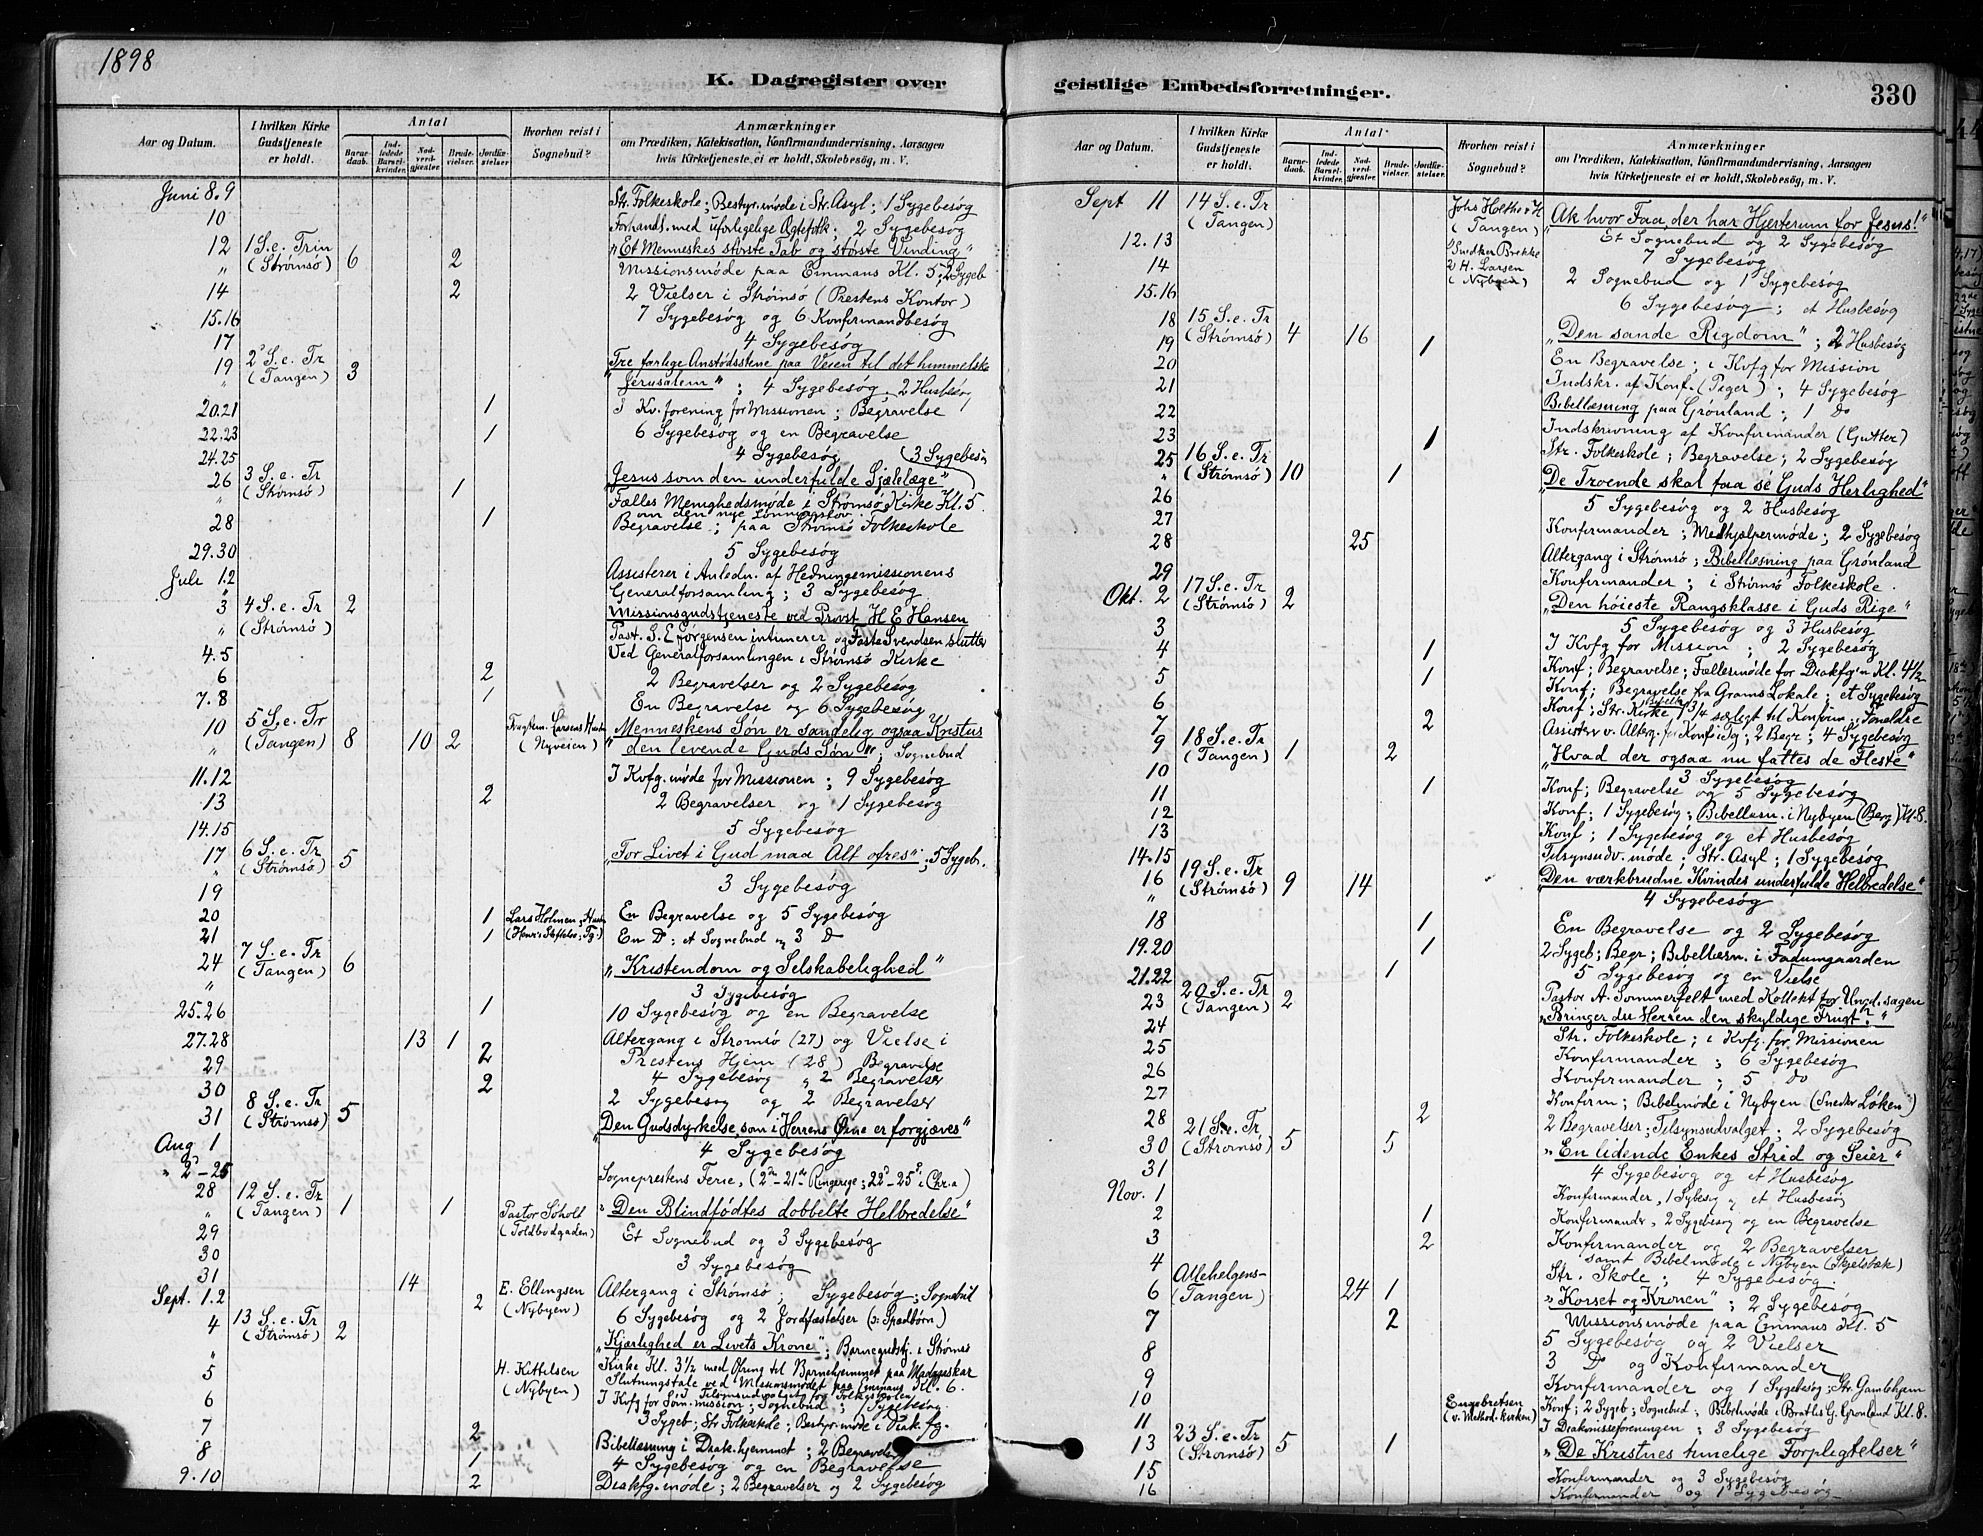 1898
K. Dagregister over
Aar og Datum.
I hvilken Kirke Gudstjeneste er holdt.
Antal
Barnedaab.
Indledede Barselkvinder.
Nadverdgjester.
Brudevielser.
Jordfæstelser
Hvorhen reist i Sognebud?
Anmærkninger
om Prædiken, Katekisation, Konfirmandundervisning, Aarsagen
hvis Kirketjeneste ei er holdt, Skolebesøg, m. V.
Juni 8.9 Str. Folkeskole; Bestyr. møde i Str. Asyl; 1 Sygebesøg
10 Forhandl. med uforligelige Ægtefolk. 2 Sygebesøg
12 1 S. e. Trin (Strømsø) 6 2 "Et Menneskes største Tab og største Vinding"
" Missionsmøde paa Emmaus Kl. 5; 2 Sygeb
14 2 2 Vielser i Strømsø (Prestens Kontor)
15.16 7 Sygebesøg og 6 Konfirmandbesøg
17 4 Sygebesøg
19 2' S. e. Tr (Tangen) 3 Tre farlige Anstødsstene paa Veien til det himmelske
" Jerusalem"; 4 Sygebesøg, 2 Husbesøg
20.21 1 I Kv. forening for Missionen; Begravelse
22.23 1 6 Sygebesøg og en Begravelse
24.25 4 Sygebesøg (3 Sygebesøg
26 3 S. e. Tr (Strømsø) 1 "Jesus som den underfulde Sjælelæge"
" Fælles Menighedsmøde i Strømsø Kirke Kl. 5
om den nye
28 1 Begravelse; paa Strømsø Folkeskole
29.30 5 Sygebesøg
Juli 1.2 Assisterer i Anledn. af Hedningemissionens
" Generalforsamling; 3 Sygebesøg
3 4 S. e. Tr (Strømsø) 2 Missionsgudstjeneste ved Provst H E Hansen
" Past. S. E Jørgensen intimerer og Svendsen slutter
4.5 Ved Generalforsamlingen i Strømsø Kirke
6 2 2 Begravelser og 2 Sygebesøg
7.8 1 En Begravelse og 6 Sygebesøg
10 5 S. e. Tr (Tangen) 8 10 2 Larsens (Nyveien) "Menneskens Søn er sandelig ogsaa Kristus
" den levende Guds Søn"; Sognebud
11.12 I Kvfg. møde for Missionen; 9 Sygebesøg
13 2 2 Begravelser og 1 Sygebesøg
14.15 5 Sygebesøg
17 6 S. e. Tr (Strømsø) 5 "For Livet i Gud maa Alt ofres"; 5 Sygeb.
19 3 Sygebesøg
20 1 Lars Holmen En Begravelse og 5 Sygebesøg
21 1 En Do; et Sognebud og 3 Do
24 7 S. e. Tr (Tangen) 6 "Kristendom og Selskabelighed"
" 3 Sygebesøg
25.26 1 10 Sygebesøg og en Begravelse
27.28 13 1 Altergang i Strømsø (27) og Vielse i
29 2 Prestens Hjem (28) Begravelse
4 Sygebesøg " 2 Begravelser
30 2 2 Sygebesøg og 2 Begravelser
31 8 S. e. Tr (Strømsø) 5 "Den Gudsdyrkelse, som i Herrens Øine er forgjæves"
Aug 1 4 Sygebesøg
" 2-25 Sogneprestens Ferie, (2-21 Ringerige; 22-25 i Chr.a)
28 12 S. e. Tr (Tangen) 1 1 Pastor Søholt (Toldbodgaden) "Den Blindfødtes dobbelte Helbredelse"
29 Et Sognebud og 3 Sygebesøg
30 3 Sygebesøg
31 14 E. Ellingsen (Nybyen) Altergang i Strømsø; Sygebesøg; Sognebud
Sept. 1.2 2 6 Sygebesøg og 2 Jordfæstelser (o: Spædbørn)
4 13 S. e. Tr (Strømsø) 2 "Kjærlighed er Livets Krone"; Barnegudstj. i Strømsø
" Kirke Kl. 3½ med Ofring til Barnehjemmet paa Madagaskar
5 H. Kittelsen (Nybyen) Slutningstale ved Missionsmødet paa Emmaus Kl. 6.
6 I Kvfg for Søm. mission; Sognebud; 1 Sygebesøg
7 2 3 Sygeb; Str Folkeskole; Bestyr. møde i Diak. fg.
8 1 Bibellæsning i Diak. hjemmet; 2 Begravelser
4 Sygebesøg og en Begravelse
9.10 2 Diakfg. møde; 2 Begravelser og 2 Sygebesøg
geistlige Embedsforretninger.
330
Aar og Datum.
I hvilken Kirke Gudstjeneste er holdt.
Antal
Barnedaab.
Indledede Barselkvinder.
Nadverdgjester.
Brudevielser.
Jordfæstelser.
Hvorhen reist i Sognebud?
Anmærkninger
om Prædiken, Katekisation, Konfirmandundervisning, Aarsagen
hvis Kirketjeneste ei er holdt, Skolebesøg, m. V.
Sept 11 14 S. e. Tr (Tangen) (Tangen) "Ak hvor Faa, der har Hjerterum for Jesus!"
12.13 Et Sognebud og 2 Sygebesøg
14 Snedker Brekke 2 H. Larsen (Nybyen) 7 Sygebesøg
15.16 2 Sognebud og 1 Sygebesøg
6 Sygebesøg; et Husbesøg
18 15 S. e. Tr (Strømsø) 4 16 "Den sande Rigdom"; 2 Husbesøg
19 1 En Begravelse; i Kvfg for Mission
20 Indskr. af Konf. (Piger); 4 Sygebesøg
21 Bibellæsning paa Grønland; 1 Do
22 Indskrivning af Konfirmander (Gutter)
23 1 Str. Folkeskole; Begravelse; 2 Sygebesøg
25 16 S. e. Tr (Strømsø) 10 1 "De Troende skal faa se Guds Herlighed"
26 5 Sygebesøg og 2 Husbesøg
27 Konfirmander; Medhjælpermøde; 2 Sygebesøg
28 25 Altergang i Strømsø; Bibellæsning paa Grønland
29 Konfirmander; i Strømsø Folkeskole.
Okt. 2 17 S. e. Tr (Strømsø) 2 "Den høieste Rangsklasse i Guds Rige"
3 5 Sygebesøg og 3 Husbesøg
4 1 I Kvfg for Mission; 2 Sygebesøg
5 1 Konf; Begravelse; Fællesmøde for Diakfg'n Kl. 4½
6 Konf; Begravelse fra Grams Lokale; et Sygebesøg
7 2 Konf; Str. Kirke særligt til Konfirm.; Forældre
Assisterer v. Alterg. for Konf i Tg; 2 Begr; 4 Sygebesøg
9 18 S. e. Tr (Tangen) 1 2 "Hvad der ogsaa nu fattes de Fleste"
10 3 Sygebesøg
11 1 Konf; Begravelse og 5 Sygebesøg
12 Konf; 1 Sygebesøg; Bibellæsn. i Nybyen (Berg) Kl. 8.
13 Konf; 1 Sygebesøg og et Husbesøg
14.15 Tilsynsudv. møde; Str. Asyl; 1 Sygebesøg
16 19 S. e. Tr (Strømsø) 9 14 "Den værkbrudne Kvindes underfulde Helbredelse"
" 4 Sygebesøg
18 1 En Begravelse og 2 Sygebesøg
19.20 1 2 Sygeb; Begr; Bibellæsn. i Fadumgaarden
21.22 1 5 Sygebesøg og en Vielse
23 20 S. e. Tr (Tangen) 2 Pastor A. Sommerfelt med Kollekt for
"Bringer du Herren den skyldige Frugt?"
24 Str. Folkeskole; i Kvfg. for Missionen
25 Konfirmander; 6 Sygebesøg
26 Konfirmander; 5 Do
27 Konfirm; Bibelmøde i Nybyen (Snedker Løken)
28 2 2 Begravelser; Tilsynsudvalget; 2 Sygebesøg
30 21 S. e. Tr (Strømsø) 5 5 "En lidende Enkes Strid og Seier"
31 4 Sygebesøg og et Husbesøg
Nov. 1 Konfirmander, 1 Sygbesøg, et Husbesøg
2 1 Konfirmander, 2 Sygebesøg og en Begravelse
3 2 Konfirmander og 2 Begravelser
samt Bibelmøde i Nybyen (Skjelsbæk)
4 Str. Skole; 4 Sygebesøg.
6 Allehelgens- (Tangen) 24 1 "Korset og Kronen"; 2 Sygebesøg
Missionsmøde paa Emmaus Kl. 5
7 2 5 Sygebesøg og 2 Vielser
8 3 Do og Konfirmander
9 Konfirmander og 1 Sygebesøg; Str. Gamlehjem
10 Engebretsen (v. Method. kirken) Konf; 2 Sygeb; Sognebud; Bibelmøde i Gr. Grønland Kl. 8.
11 I Diakonisseforeningen; 3 Sygebesøg
13 23 S. e. Tr (Strømsø) 5 1 "De Kristnes timelige Forpligtelser"
15 Konfirmander og 3 Sygebesøg
16 Konfirmander og 1 Sygebesøg